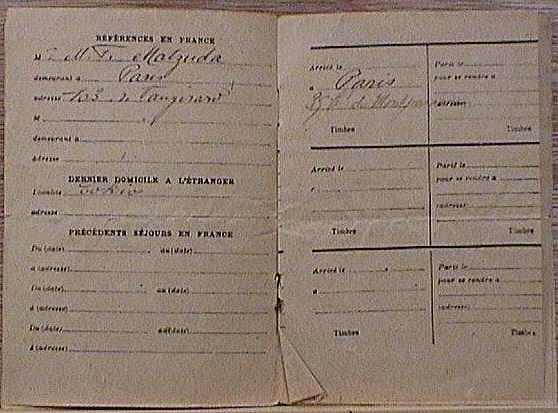 RÉFÉRENCES EN FRANCE
M
demeurant à Paris
adresse 103
M
demeurant à
adresse
DERNIER DOMICILE A L'ÉTRANGER
Localité Tokio
adresse
PRÉCÉDENTS SÉJOURS EN FRANCE
Du (date) au (date)
à (adresse)
Du (date) au (date)
à (adresse)
Du (date) au (date)
à (adresse)
Arrivé le
à Paris
Timbre
Parti le
pour se rendre à
(adresse)
Timbre
Arrivé le
Timbre
Parti le
pour se rendre à
(adresse)
Timbre
Arrivé le
à
Timbre
Parti le
pour se rendre à
(adresse)
Timbre